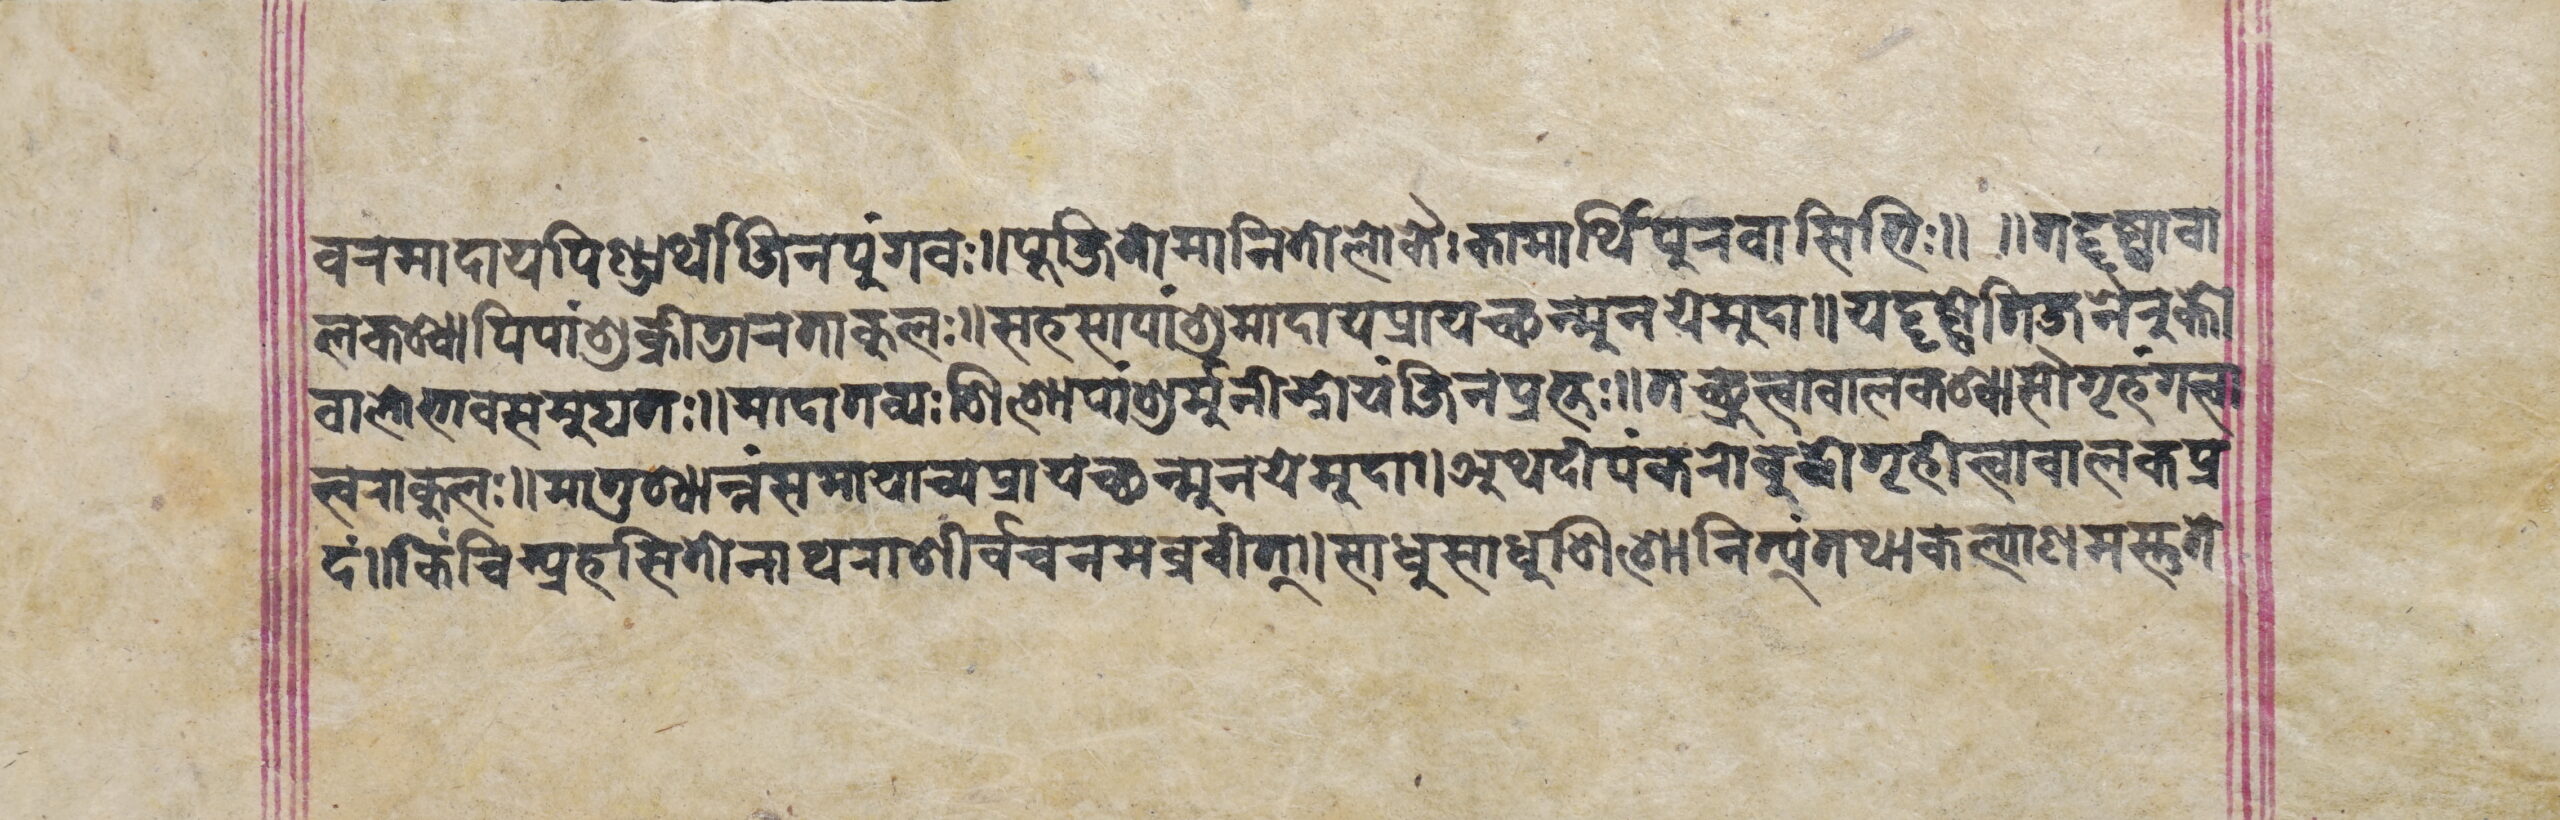 वरमादायपिण्डार्थंजिनपुंगवः॥पूजितोमानितोलोकैःकामार्थिपुरवासिभिः॥ ॥तद्दृष्ट्वावा
लकश्चापिपांशुक्रीतारताकुलः॥सहसापांशुमादायप्रायच्छन्मुनयेमुदा॥यद्दृष्ट्वेतिजनैरुक्तो
वालोभावसमुद्यतः॥मादातव्यःशिशोपांशुर्मुनीन्द्रोयंजिनप्रभुः॥तच्छ्रुत्वावालकश्चासौगृहंगत्वा
त्वराकुलः॥मातुश्चान्नंसमायाच्यप्रायच्छन्मुनयेमुदा॥अथदीपंकरोबुद्धोगृहीत्वावालकप्र
दं॥किंचित्प्रहसितोनाथराशीर्वचनमब्रवीत्॥साधुसाधुशिशोनित्यंतथाकल्याणमस्तुते